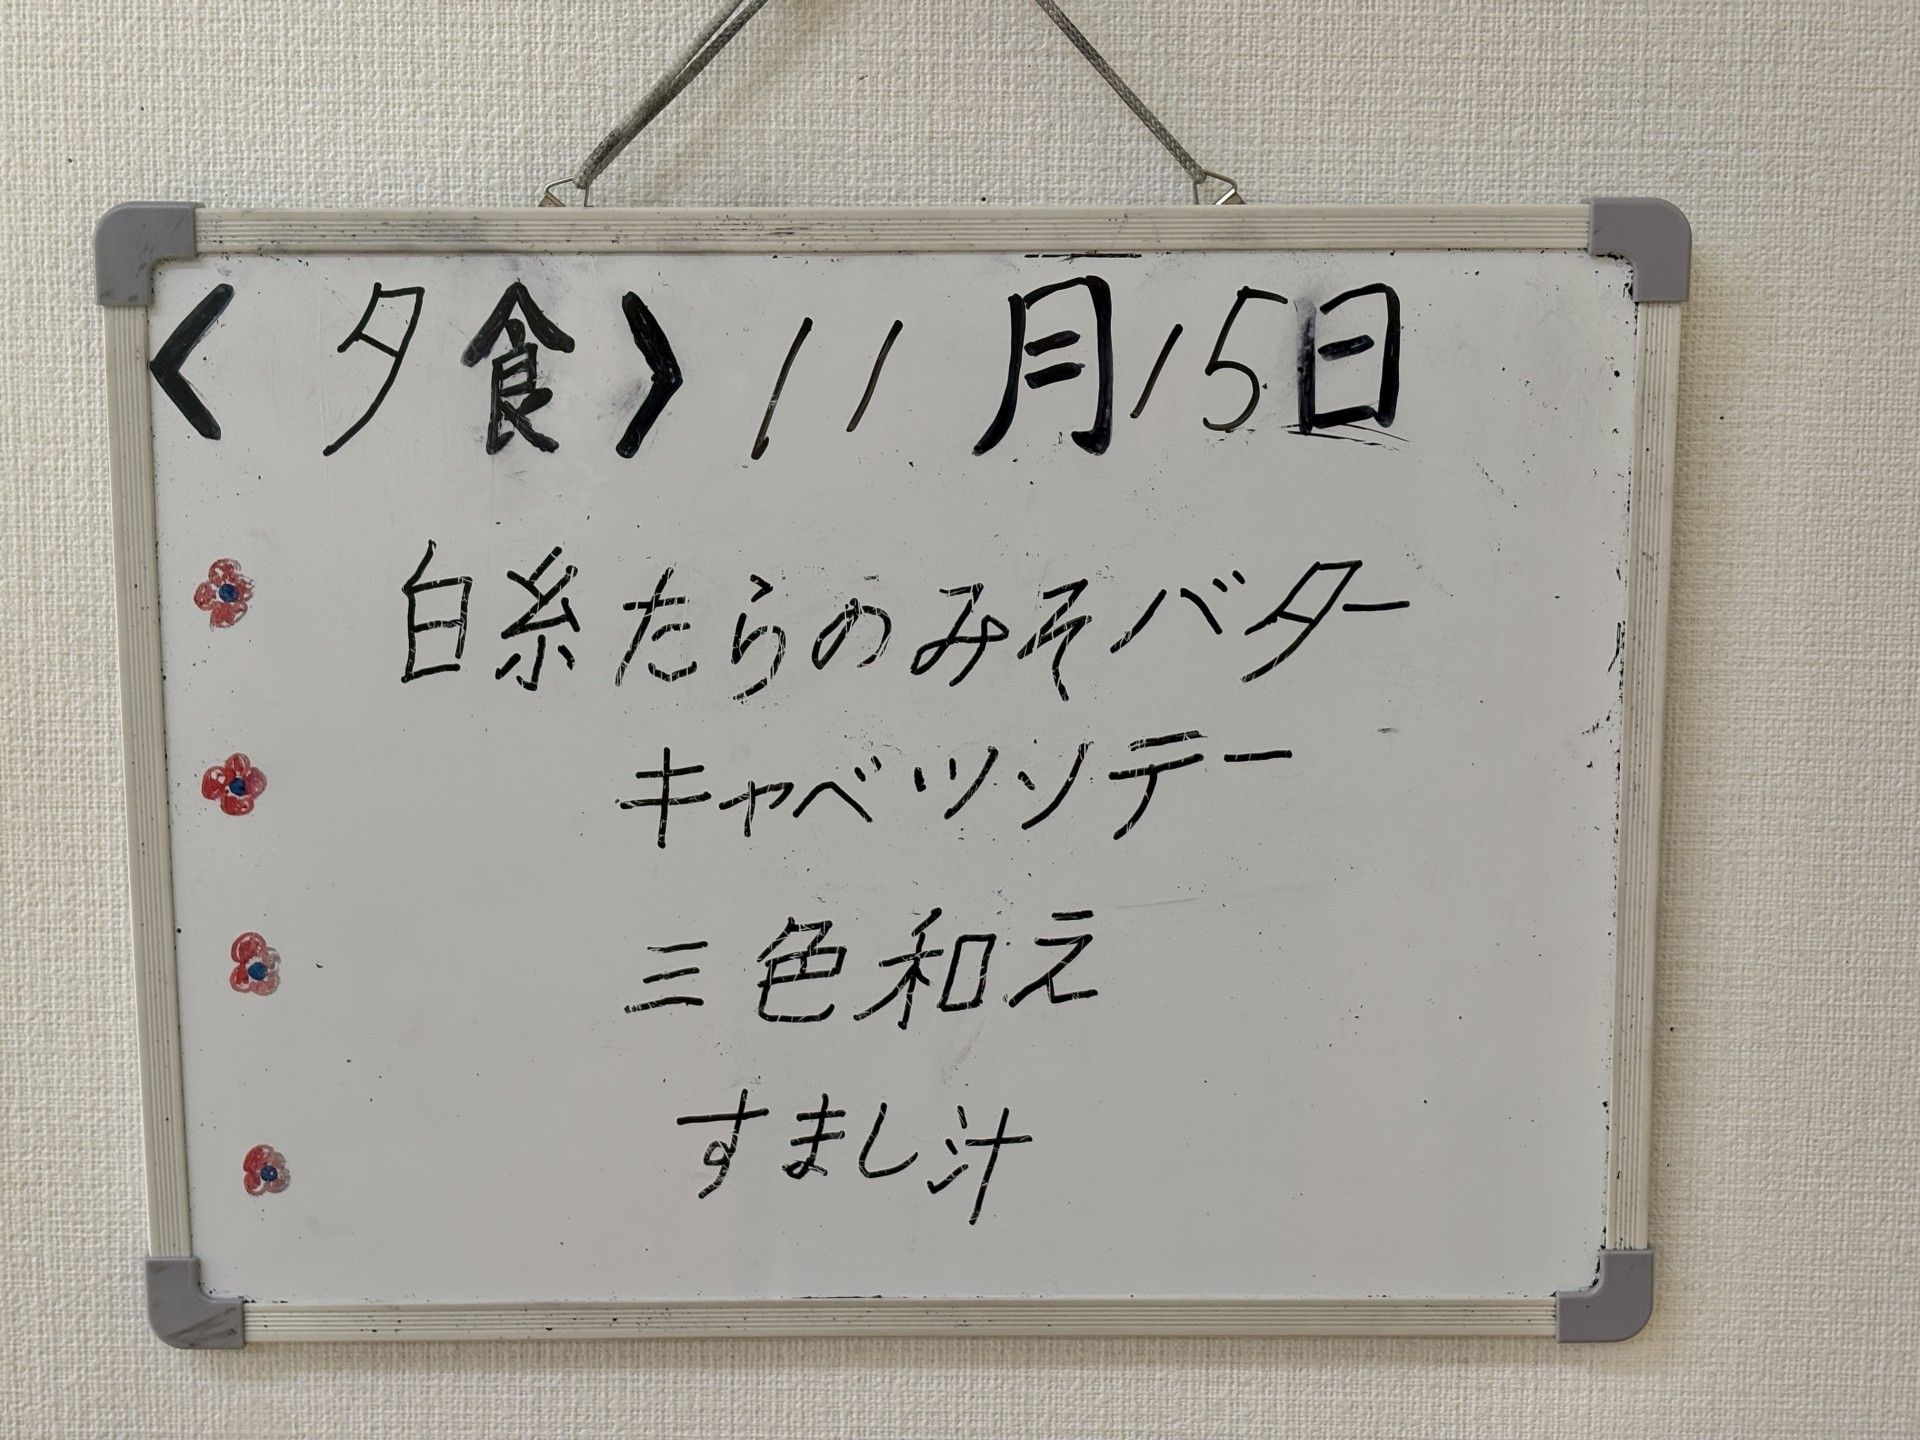 〈夕食〉11月15日
白糸たらのみそバター
キャベツソテー
三色和え
すまし汁